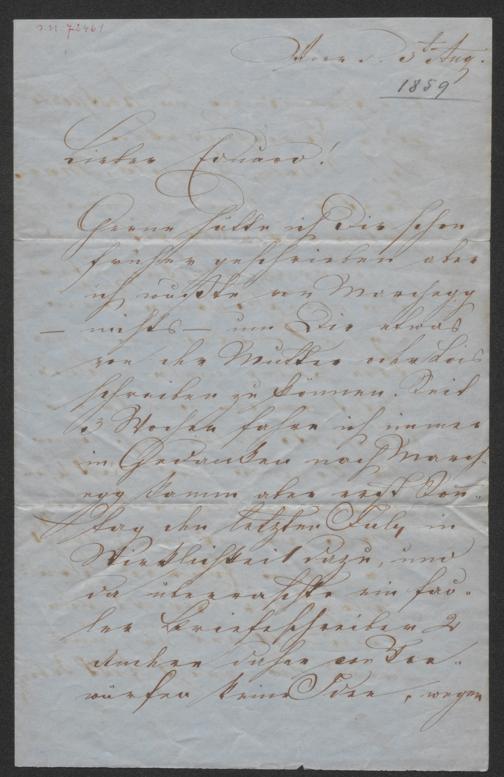 I.N. 72461
Wien d. 5t Aug.
1859
Lieber Eduard!
Gerne hätte ich Dir schon
früher geschrieben aber
ich wußte von Marchegg
— nichts — um Dir etwas
von der Mutter oder Lois
schreiben zu können. Seit
3 Wochen fahre ich immer
in Gedanken nach March
egg kamm aber erst Son-
tag den letzten July in
Wirklichkeit dazu, und
da überraschte ein fau-
ler Briefschreiber 2
Andere daher von Vor-
würfen keine Idee, wegen